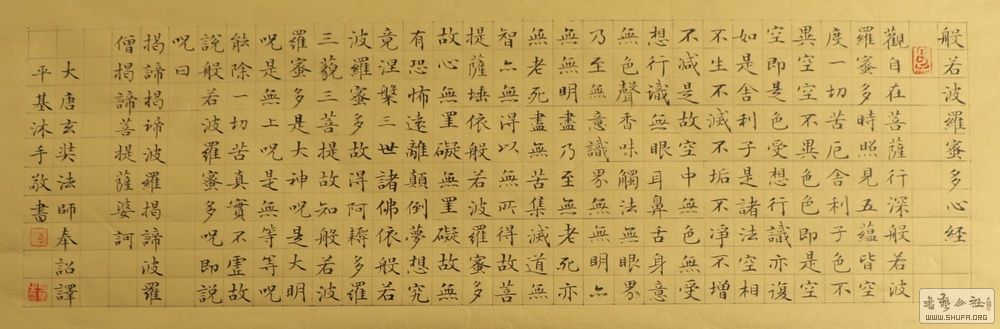 般若波羅蜜多心経
觀自在菩薩行深般若波
羅蜜多時照見五蘊皆空
度一切苦厄舍利子色不
異空空不異色色即是空
空即是色受想行識亦復
如是舍利子是諸法空相
不生不滅不垢不淨不增
不減是故空中無色無受
想行識無眼耳鼻舌身意
無色聲香味觸法無眼界
乃至無意識界無無明亦
無無明盡乃至無老死亦
無老死盡無苦集滅道無
智亦無得以無所得故菩
提薩埵依般若波羅蜜多
故心無罣礙無罣礙故無
有恐怖遠離顛倒夢想究
竟涅槃三世諸佛依般若
波羅蜜多故得阿耨多羅
三藐三菩提故知般若波
羅蜜多是大神呪是大明
呪是無上呪是無等等呪
能除一切苦真實不虛故
說般若波羅蜜多呪即說
呪曰
揭諦揭諦波羅揭諦波羅
僧揭諦菩提薩婆訶
大唐玄奘法師奉詔譯
平基沐手敬書
書藝公社
WWW.SHUFA.ORG